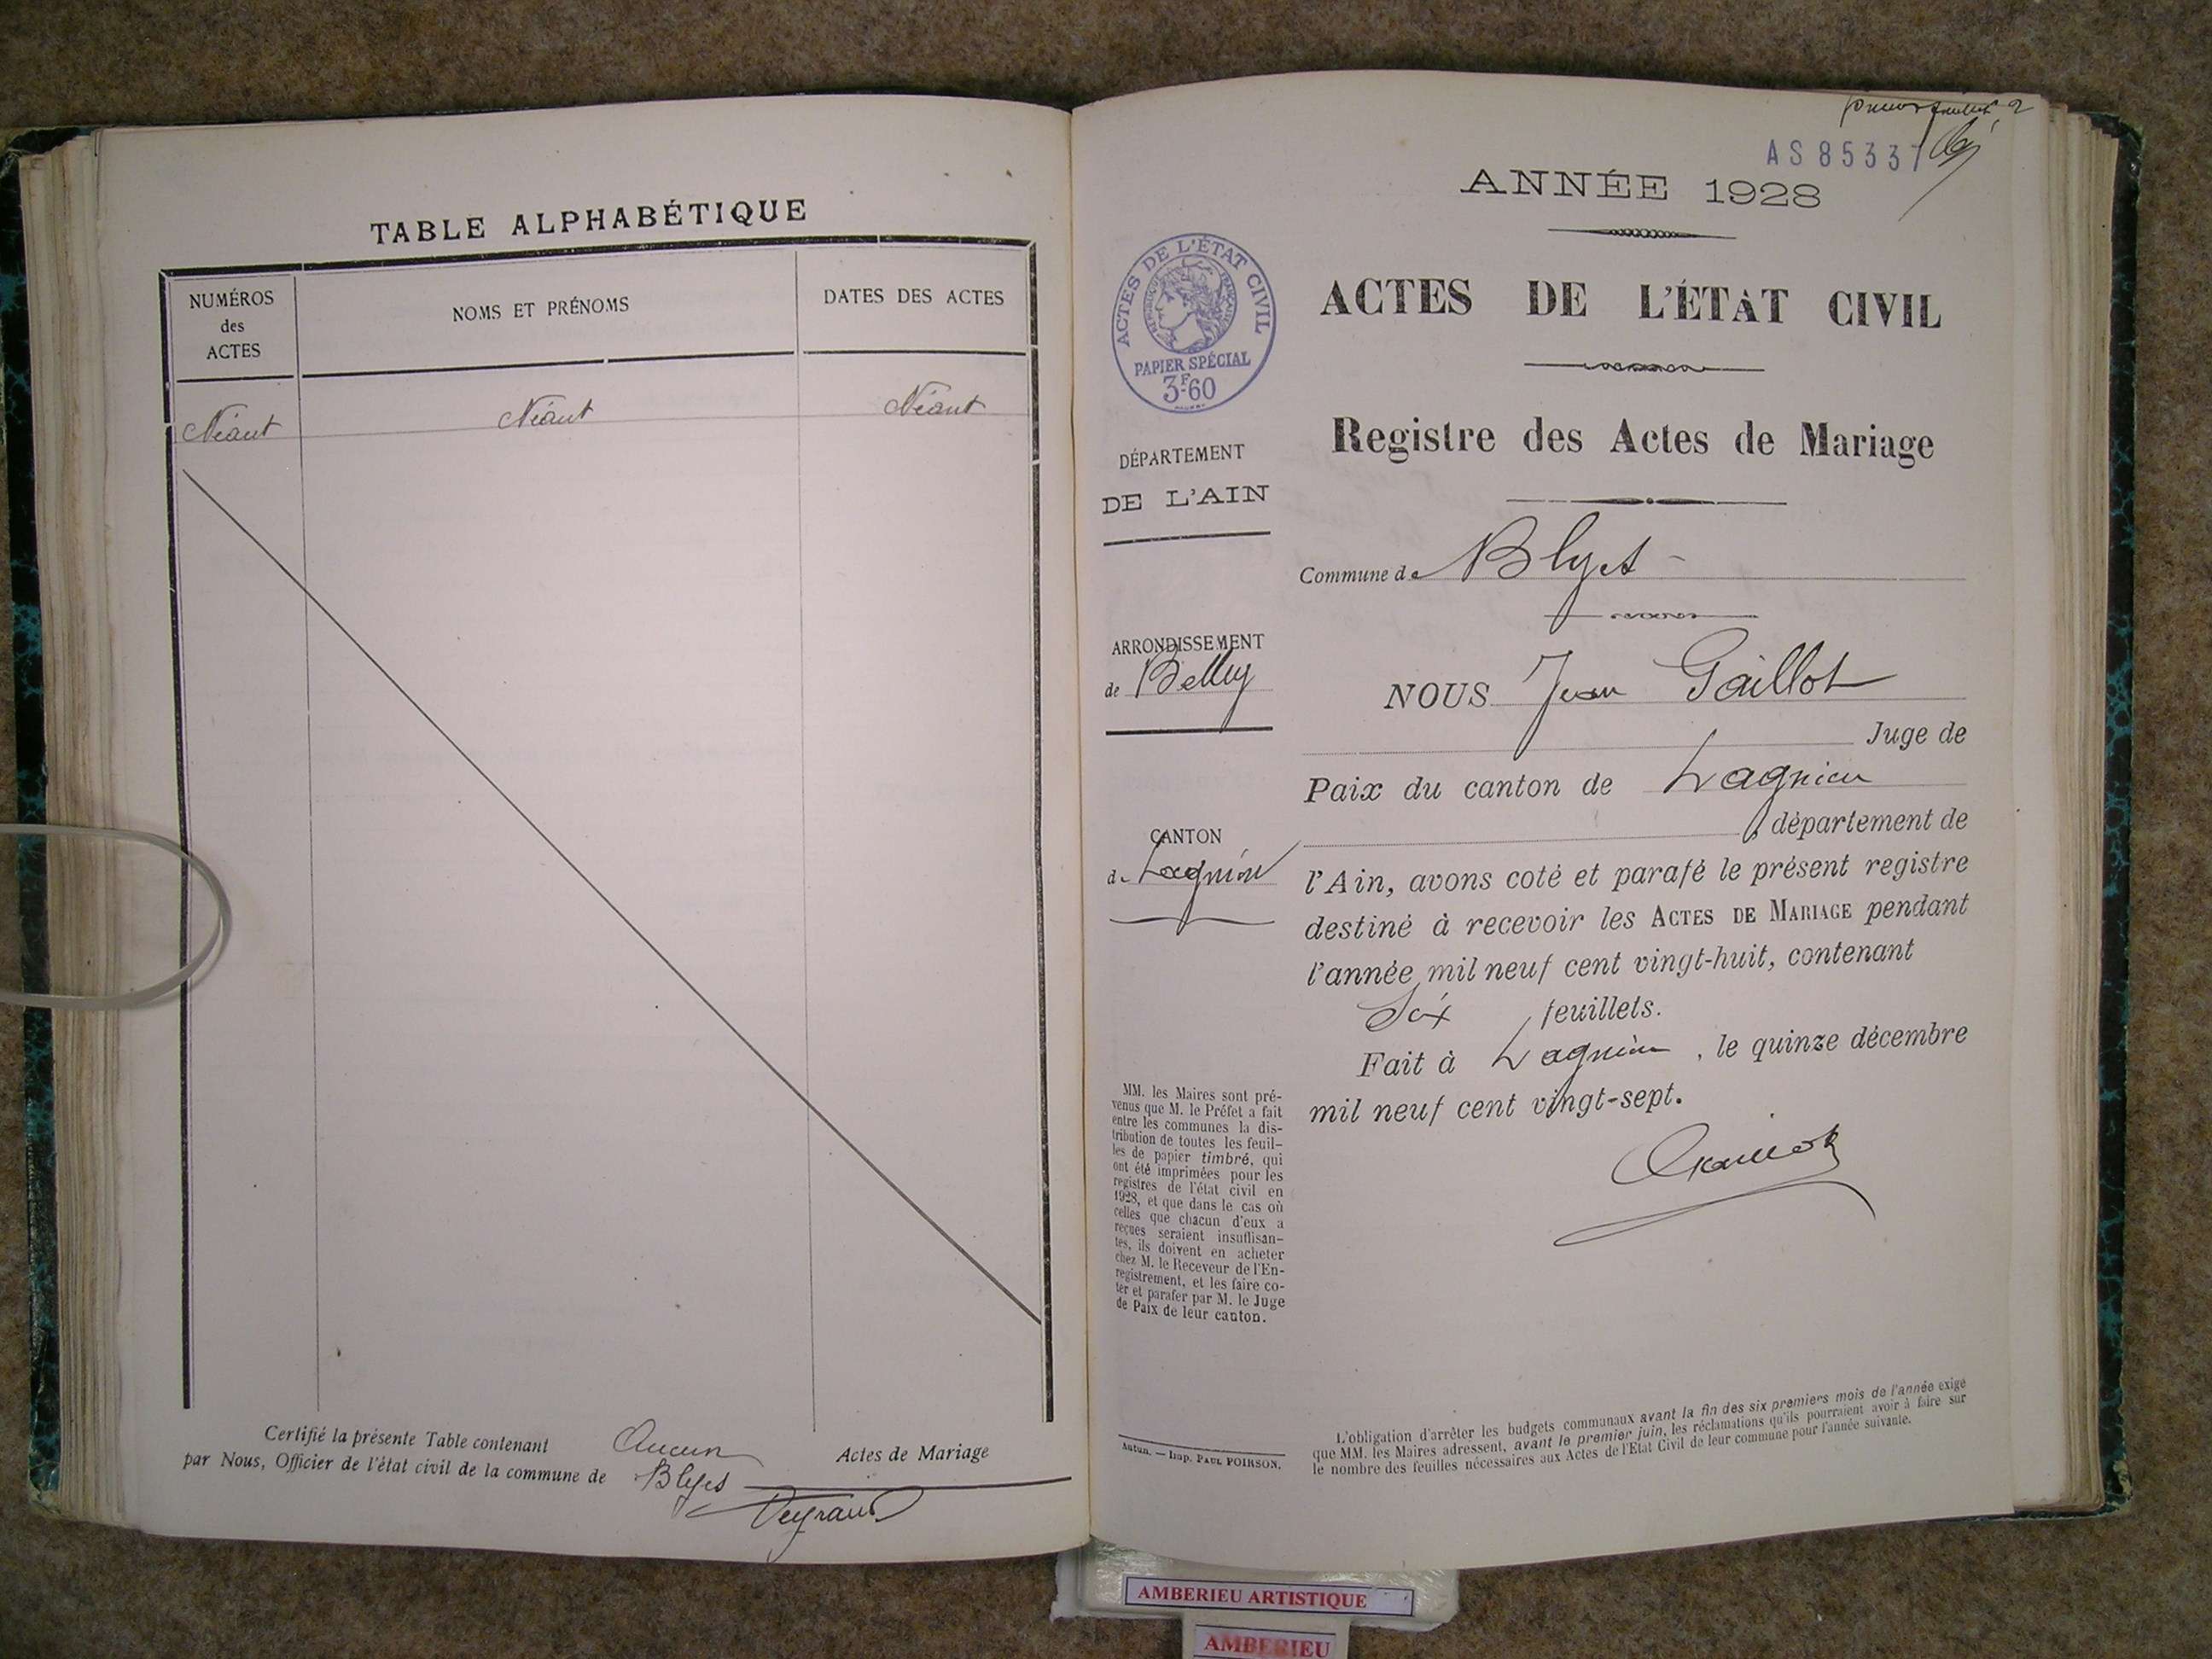 TABLE ALPHABÉTIQUE
NUMÉROS
des
ACTES
NOMS ET PRÉNOMS
DATES DES ACTES
Néant Néant Néant
Certifié la présente Table contenant Aucun Actes de Mariage
par Nous, Officier de l'état civil de la commune de Blyes
AS 85337
ANNÉE 1928
ACTES DE L'ÉTAT CIVIL
RÉPUBLIQUE FRANÇAISE
PAPIER SPÉCIAL
3F60
DÉPARTEMENT
DE L'AIN
ARRONDISSEMENT
de Belley
CANTON
de Lagnieu
MM. les Maires sont pré-
venus que M. le Préfet a fait
entre les communes la dis-
tribution de toutes les feuil-
les de papier timbré, qui
ont été imprimées pour les
registres de l'état civil en
1928, et que dans le cas où
celles que chacun d'eux a
reçues seraient insuffisan-
tes, ils doivent en acheter
chez M. le Receveur de l'En-
registrement, et les faire co-
ter et parafer par M. le Juge
de Paix de leur canton.
Autun. — Imp. PAUL POIRSON.
ACTES DE L'ÉTAT CIVIL
Registre des Actes de Mariage
Commune de Blyes
NOUS Jean Gaillot
Juge de
Paix du canton de Lagnieu
, département de
l'Ain, avons coté et parafé le présent registre
destiné à recevoir les ACTES DE MARIAGE pendant
l'année mil neuf cent vingt-huit, contenant
Six feuillets.
Fait à Lagnieu, le quinze décembre
mil neuf cent vingt-sept.
Gaillot
L'obligation d'arrêter les budgets communaux avant la fin des six premiers mois de l'année exige
que MM. les Maires adressent, avant le premier juin, les réclamations qu'ils pourraient avoir à faire sur
le nombre des feuilles nécessaires aux Actes de l'Etat Civil de leur commune pour l'année suivante.
AMBERIEU ARTISTIQUE
AMBERIEU